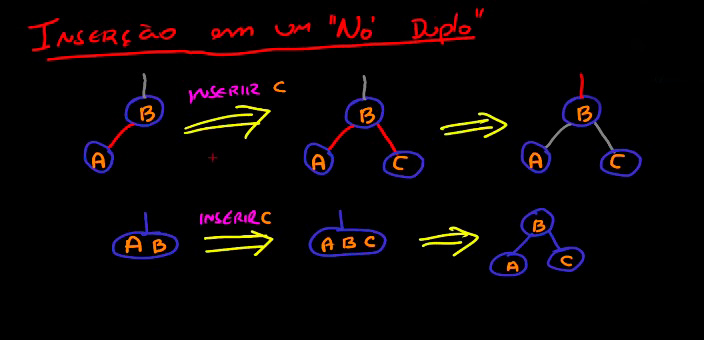 INSERÇÃO em um "Nó Duplo"
INSERIR C
B B B
A A C A C
INSERIR C
A B A B C B
A C